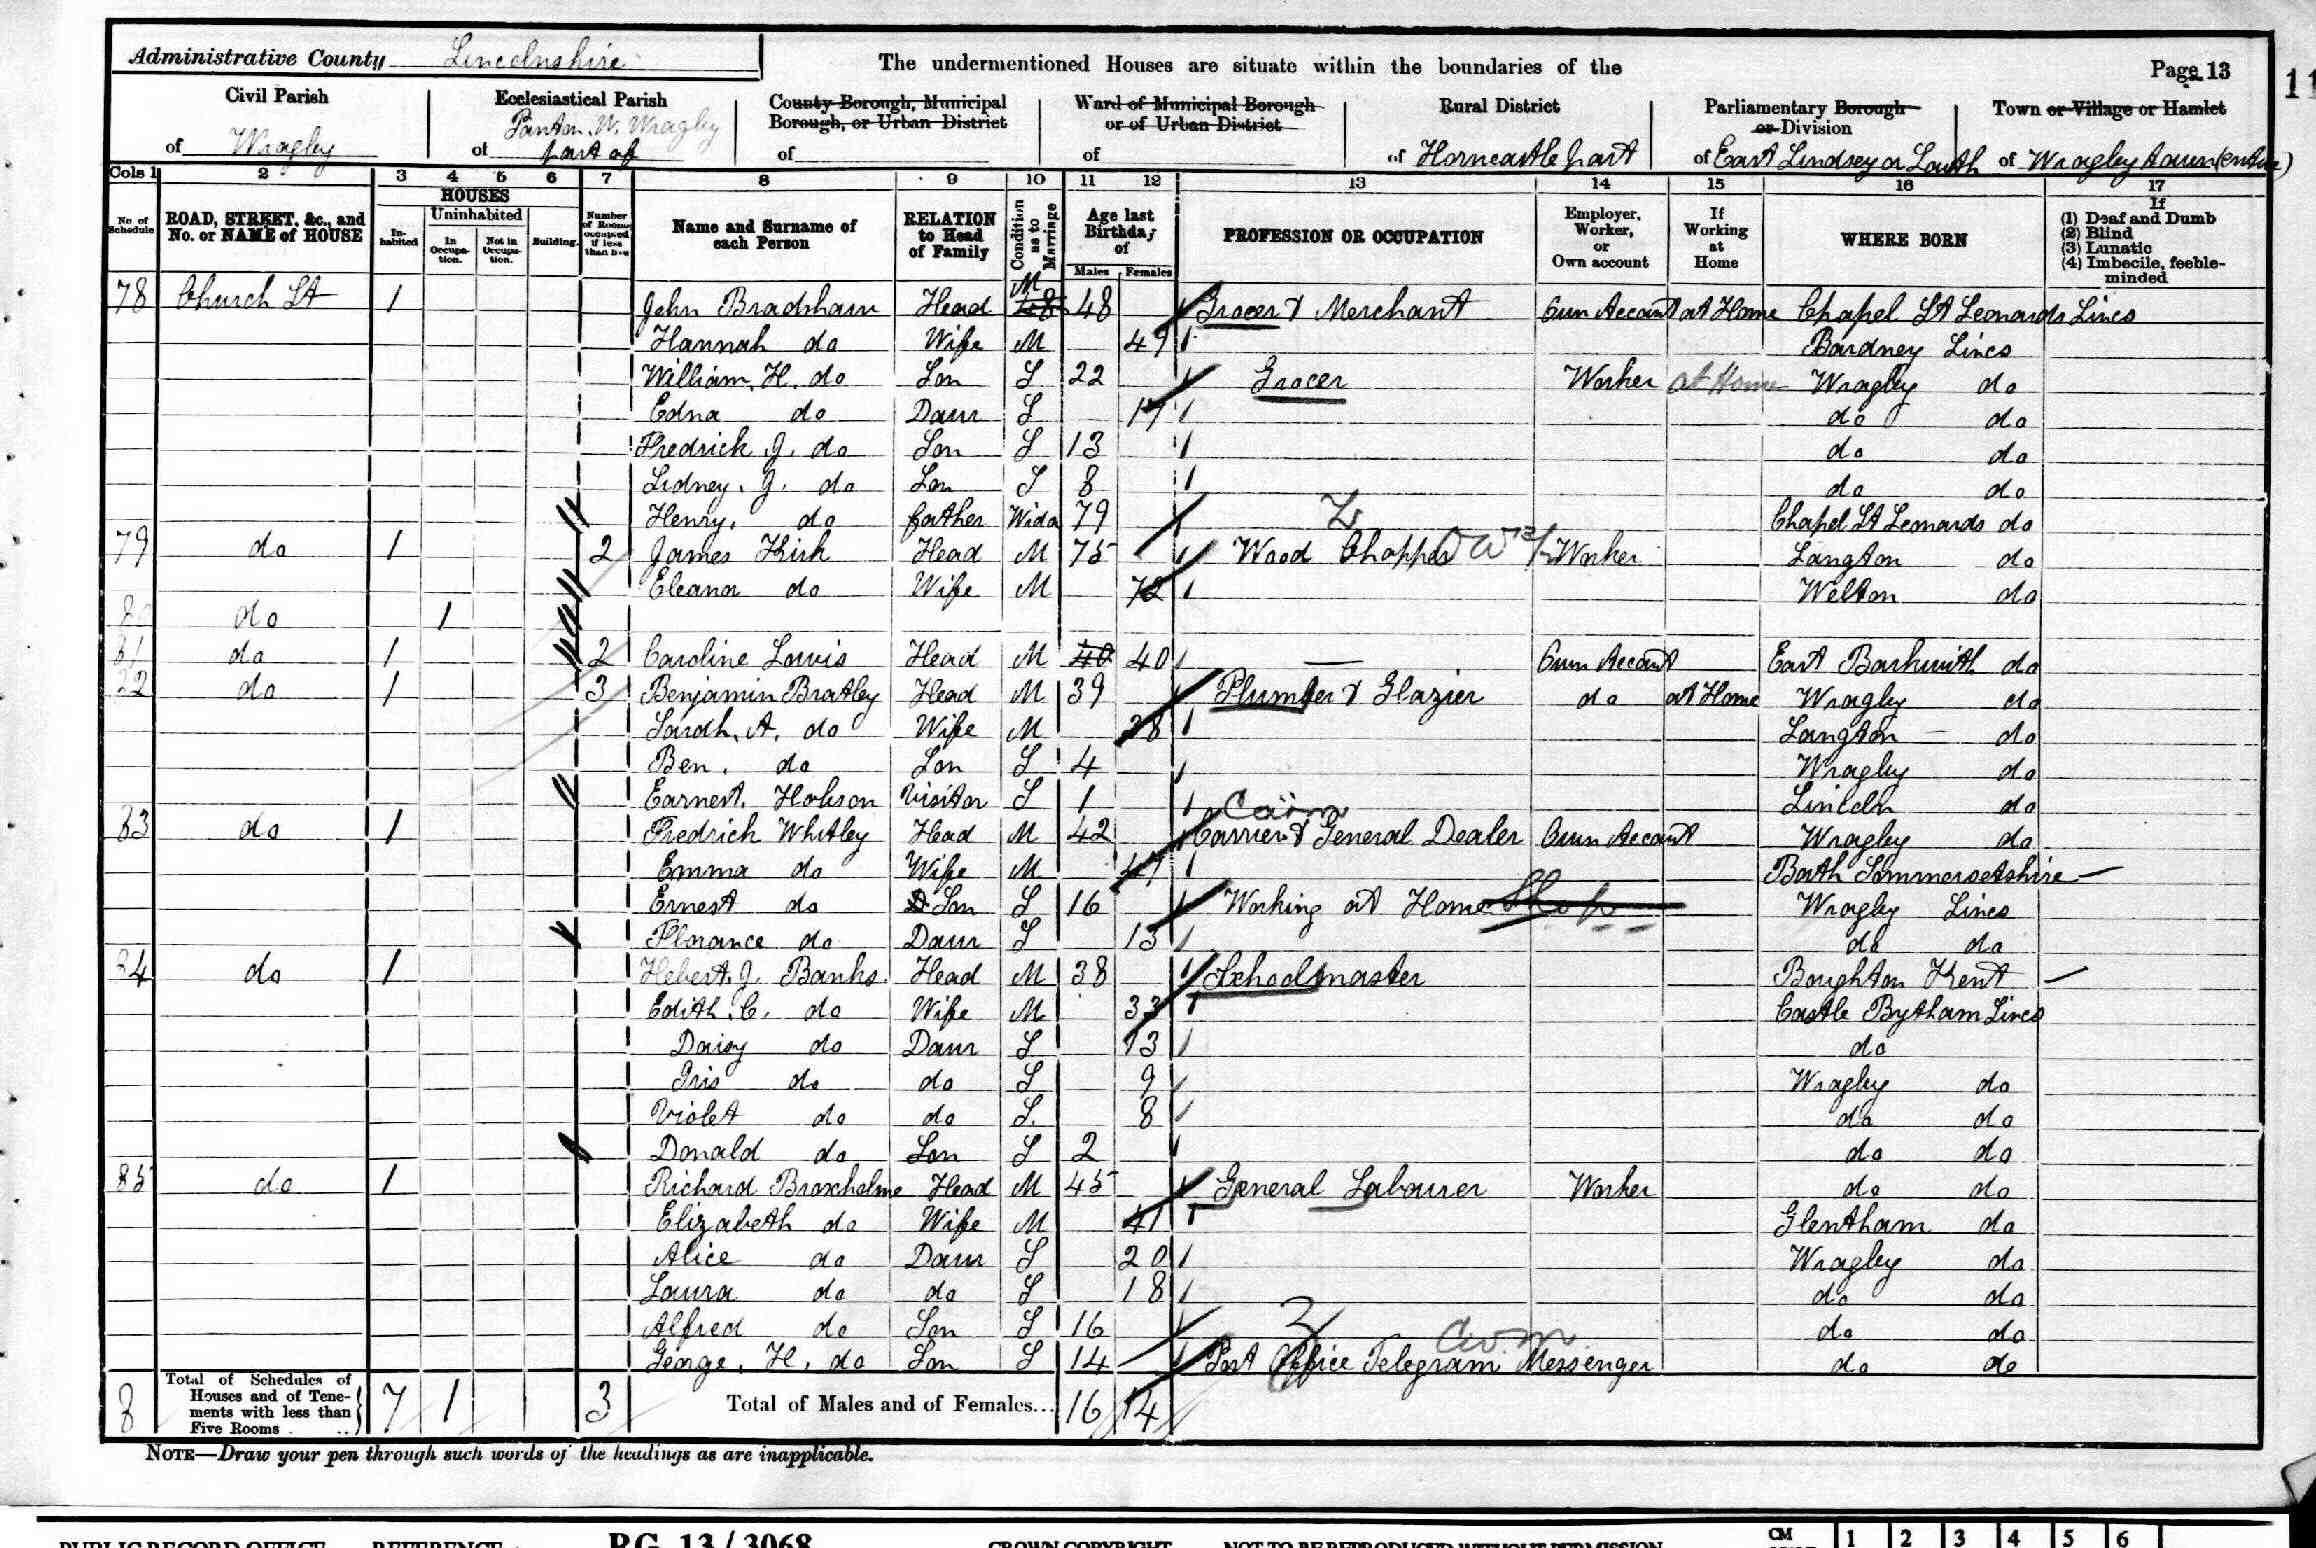 Administrative County Lincolnshire The undermentioned Houses are situate within the boundaries of the Page 13
Civil Parish Ecclesiastical Parish County Borough, Municipal Borough, or Urban District Ward of Municipal Borough or of Urban District Rural District Parliamentary Borough or Division Town or Village or Hamlet
of Wragley of Panton W. Wragley part of of of of Horncastle part of East Lindsey or Louth of Wragley town (entire)
Cols 1 2 3 4 5 6 7 8 9 10 11 12 13 14 15 16 17
No of Schedule ROAD, STREET, &c., and No. or NAME of HOUSE HOUSES Inhabited Uninhabited In Occupation. Not in Occupation. Building. Number of Rooms occupied if less than five Name and Surname of each Person RELATION to Head of Family Condition as to Marriage Age last Birthday of Males Females PROFESSION OR OCCUPATION Employer, Worker, or Own account If Working at Home WHERE BORN If (1) Deaf and Dumb (2) Blind (3) Lunatic (4) Imbecile, feeble-minded
78 Church St 1 John Bradshaw Head M 48 48 Grocer & Merchant Own Account at Home Chapel St Leonards Lincs
Hannah do Wife M 49 Bardney Lincs
William. H. do Son S 22 Grocer Worker at Home Wragley do
Edna do Daur S 17 do do
Fredrick J. do Son S 13 do do
Sidney. J. do Son S 8 do do
Henry. do father Wido 79 Chapel St Leonards do
79 do 1 2 James Kirk Head M 75 Wood Chopper Worker Langton do
Eleanor do Wife M 72 Welton do
80 do 1
81 do 1 2 Caroline Lewis Head M 40 40 — Own Account East Barkwith do
82 do 1 3 Benjamin Bratley Head M 39 Plumber & Glazier do at Home Wragley do
Sarah. A. do Wife M 38 Langton do
Ben. do Son S 4 Wragley do
Earnest. Hobson Visitor S 1 Lincoln do
83 do 1 Fredrick Whitley Head M 42 Carrier & General Dealer Own Account Wragley do
Emma do Wife M 47 Bath Sommersetshire
Ernest do Son S 16 Working at Home Wragley Lincs
Florance do Daur S 13 do do
84 do 1 Hebert. J. Banks. Head M 38 Schoolmaster Boughton Kent
Edith. C. do Wife M 33 Castle Bytham Lincs
Daisy do Daur S 13 do
Iris do do S 9 Wragley do
Violet do do S. 8 do do
Donald do Son S 2 do do
85 do 1 Richard Broxholme Head M 45 General Labourer Worker do do
Elizabeth do Wife M 41 Glentham do
Alice do Daur S 20 Wragley do
Laura do do S 18 do do
Alfred do Son S 16 do do
George. H. do Son S 14 Post Office Telegram Messenger do do
8 Total of Schedules of Houses and of Tenements with less than Five Rooms 7 1 3 Total of Males and of Females... 16 14
NOTE—Draw your pen through such words of the headings as are inapplicable.
PUBLIC RECORD OFFICE REFERENCE RG 13/3068 CROWN COPYRIGHT NOT TO BE REPRODUCED WITHOUT PERMISSION CM 1 2 3 4 5 6